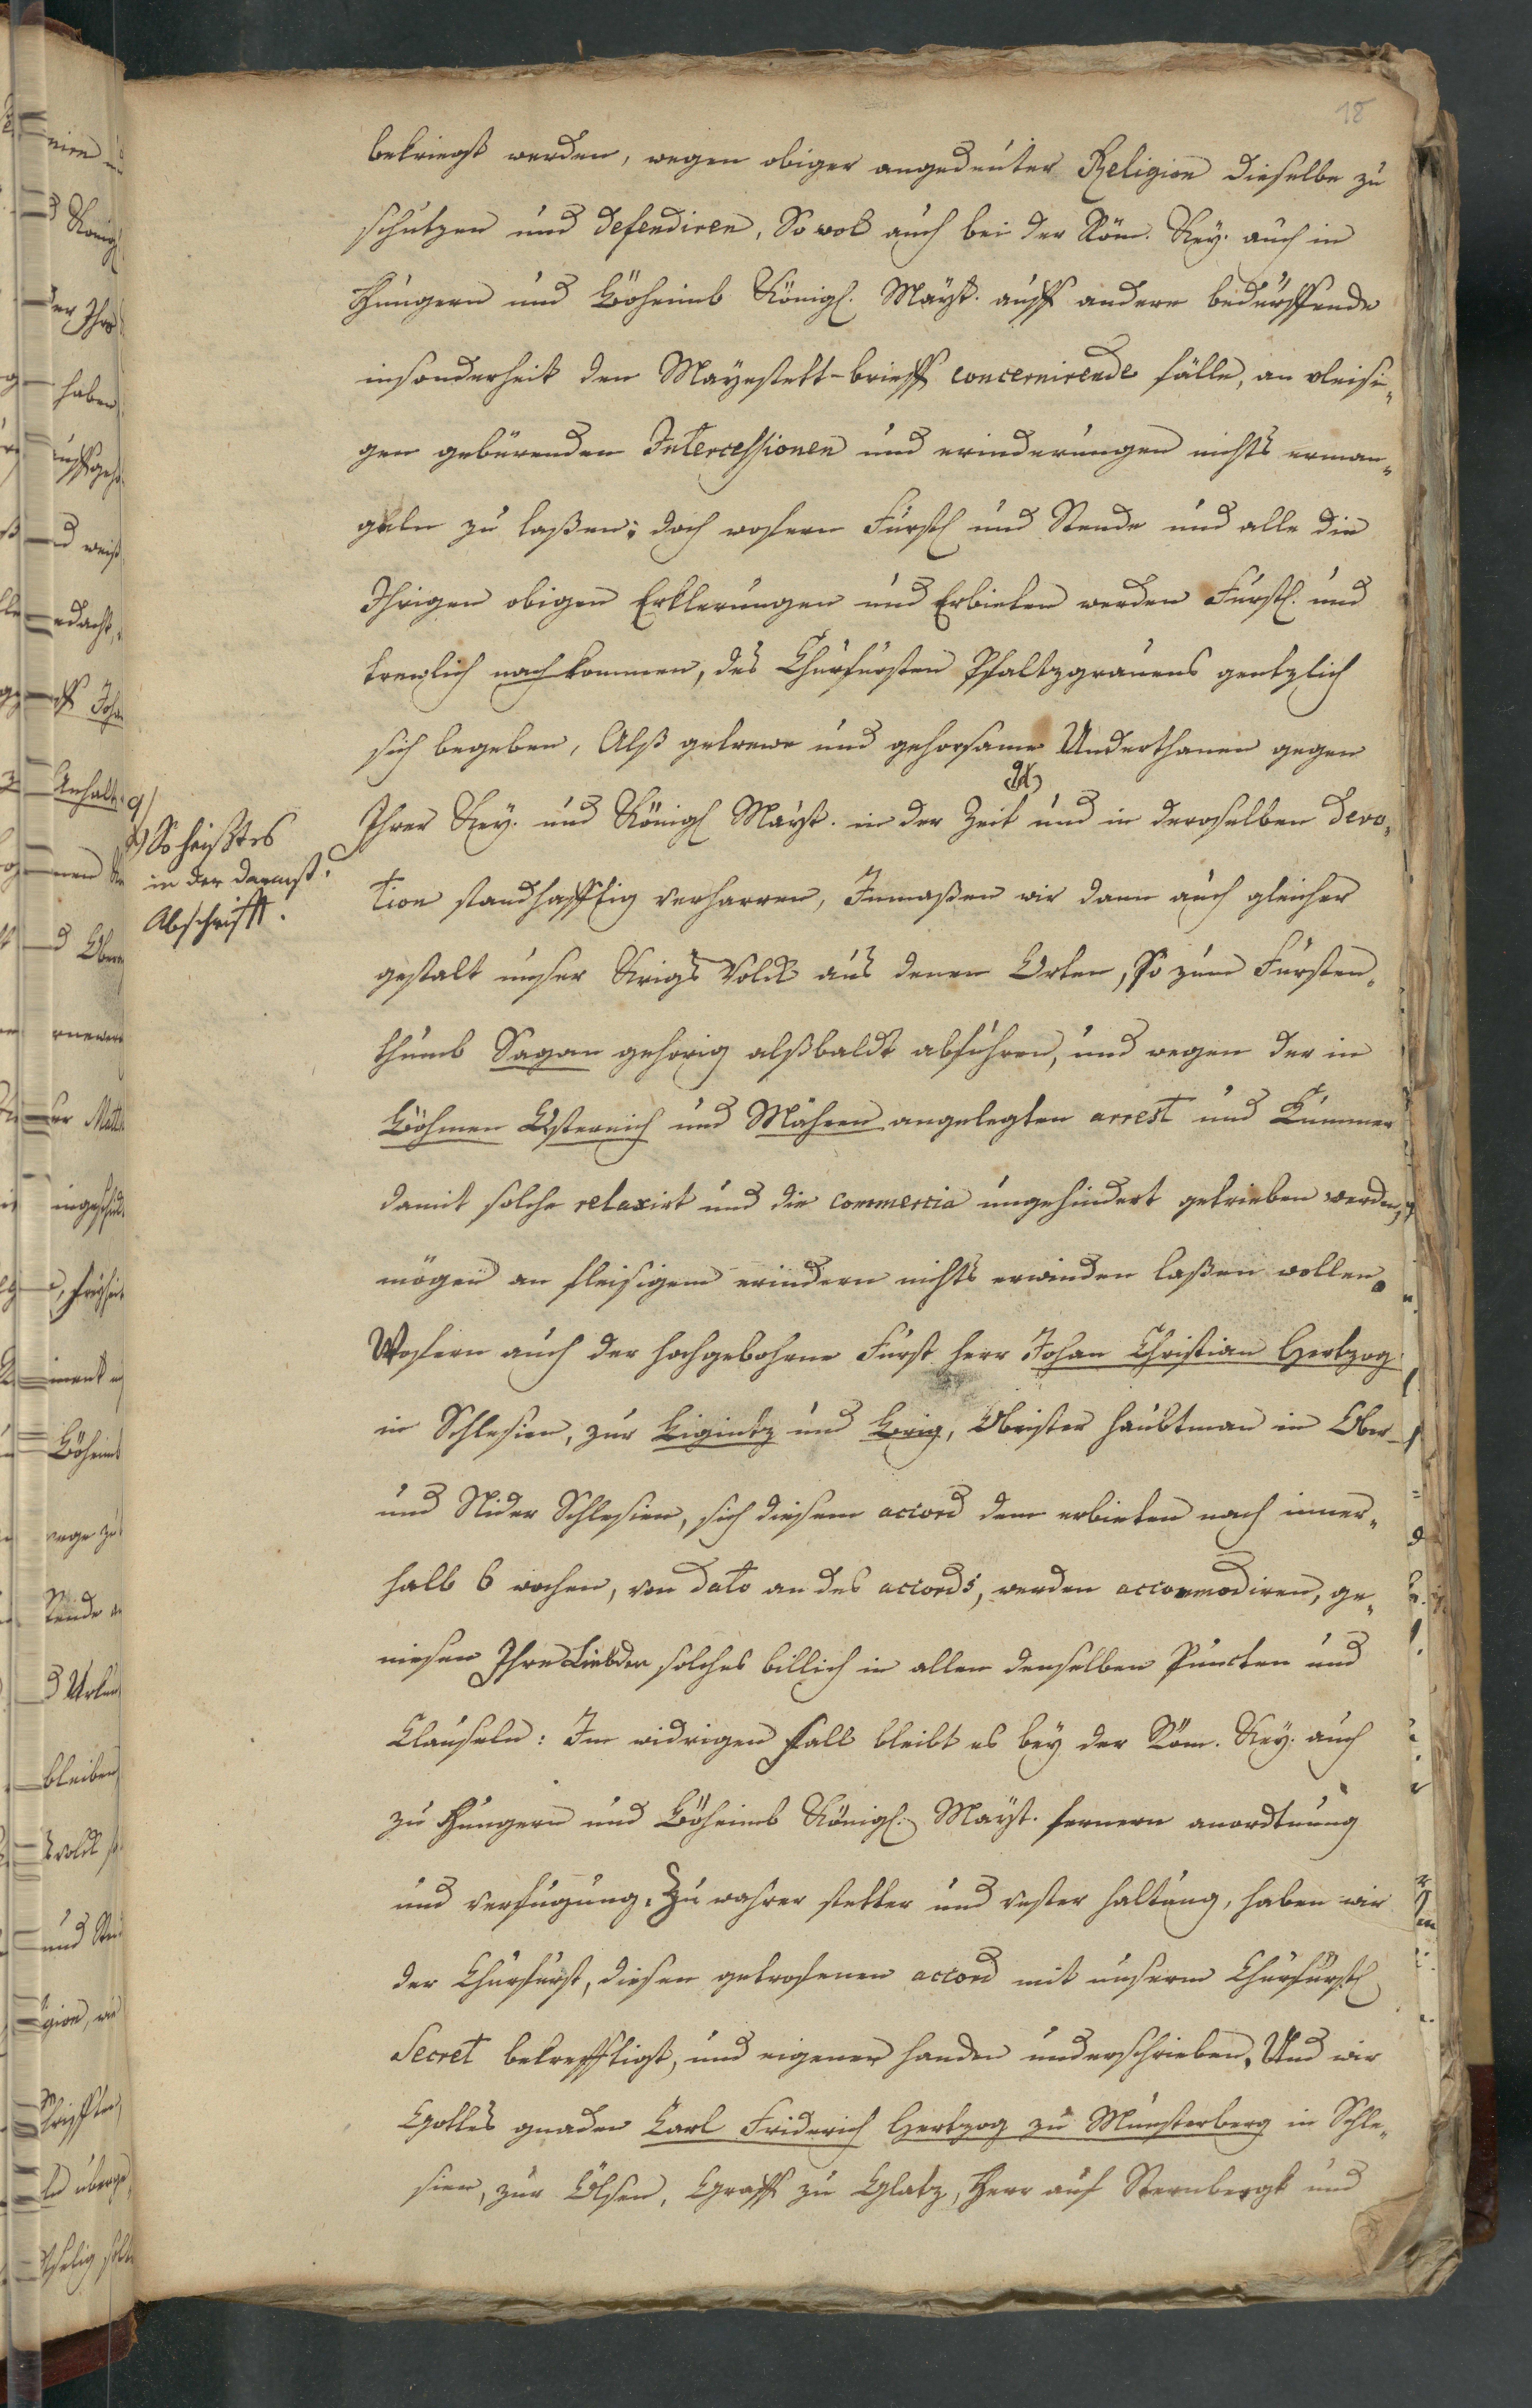 18
bekriegt werden, wegen obiger angedeuter Religion dieselbe zu
schutzen und defendiren, So wol auch bei der Röm. Key. auch in
Hungern und Böheimb Königl. Mayt. auff andere bedurffende
insonderheit den Mayestett-brieff concernirende fälle, an vleisi„
gen gebürenden Intercessionen und erinderungen nichts erman„
geln zu laßen; doch wofern Furstl und Stende und alle die
Ihrigen obigen Erklerungen und Erbieten werden Furstl. und
trewlich nachkommen, des Churfursten Pfaltzgrauens gentzlich
sich begeben, Alß getrewe und gehorsame Underthanen gegen
Ihrer Key. und Königl Mayt. in der Zeit und in deroselben devo„
tion standhafftig verharren, Inmaßen wir dann auch gleicher
gestalt unser Krigs Volck aus denen Orten, So zum Fursten„
thumb Sagan gehorig alßbaldt abfuhren, und wegen der in
Böhmen Östereich und Mähren angelegten arrest und Kummer
damit solche relaxirt und die commercia ungehindert getrieben werden,
mögen an fleisigem erindern nichts erwinden laßen wollen.
Wofern auch der hochgebohrne Furst herr Johan Christian Hertzog
in Schlesien, zur Ligintz und Brig, Obrister haubtman in Ober-
und Nider Schlesien, sich diesem accord dem erbieten nach inner„
halb 6 wochen, von dato an des accords, werden accommodiren, ge„
niesen Ihre Liebden solches billich in allen denselben Puncten und
Clauseln: Im widrigen fall bleibt es bey der Röm. Key. auch
zu Hungern und Böheimb Königl. Mayt. fernern anordtnung
und verfugung. Zu wahrer stetter und vester haltung, haben wir
der Churfurst, diesen getrofenen accord mit unserm Churfurstl
Secret bekrefftigt, und eigener handen underschrieben. Und wir
Gottes gnaden Carl Friderich Hertzog zu Munsterberg in Schle„
sien, zur Ölsen, Graff zu Glatz, Herr auf Sternbergk und
So heißt es
in der
Abschrifft.